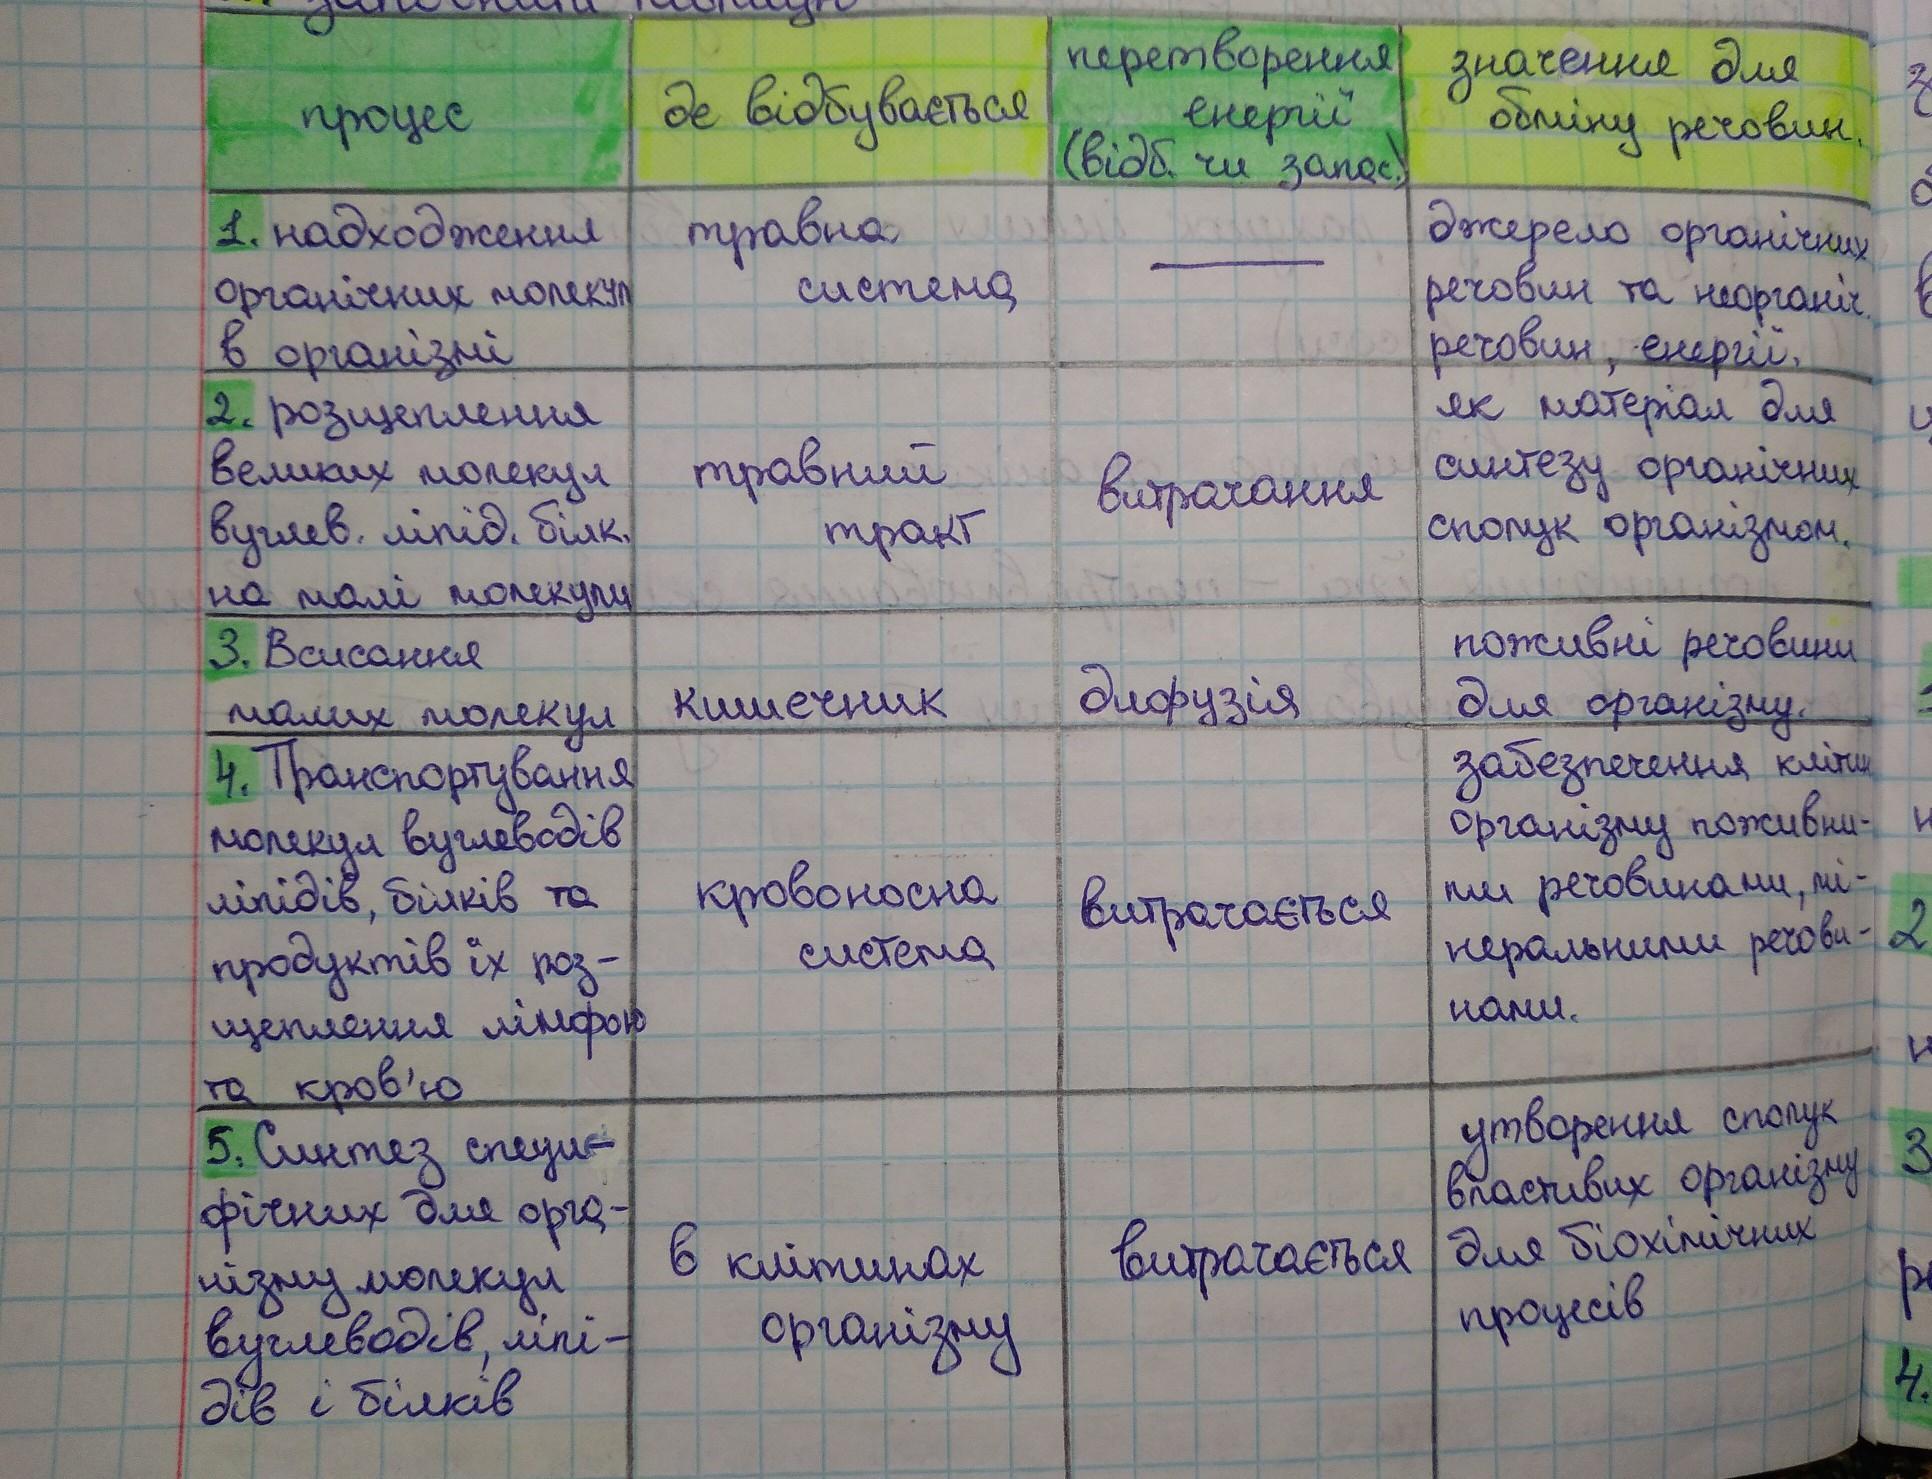 процес
де відбувається
перетворення
енергії
(відб. чи запас.)
значення для
обміну речовин.
1. надходження
органічних молекул
в організмі
травна
система
—
джерело органічних
речовин та неорганіч.
речовин, енергії.
2. розщеплення
великих молекул
вуглев. ліпід. білк.
на малі молекули
травний
тракт
витрачання
як матеріал для
синтезу органічних
сполук організмом.
3. Всисання
малих молекул
кишечник
дифузія
поживні речовини
для організму.
4. Транспортування
молекул вуглеводів
ліпідів, білків та
продуктів їх роз-
щеплення лімфою
та кров'ю
кровоносна
система
витрачається
забезпечення клітин
організму поживни-
ми речовинами, мі-
неральними речови-
нами.
5. Синтез специ-
фічних для орга-
нізму молекул
вуглеводів, ліпі-
дів і білків
в клітинах
організму
витрачається
утворення сполук
властивих організму
для біохімічних
процесів
2
3
4.